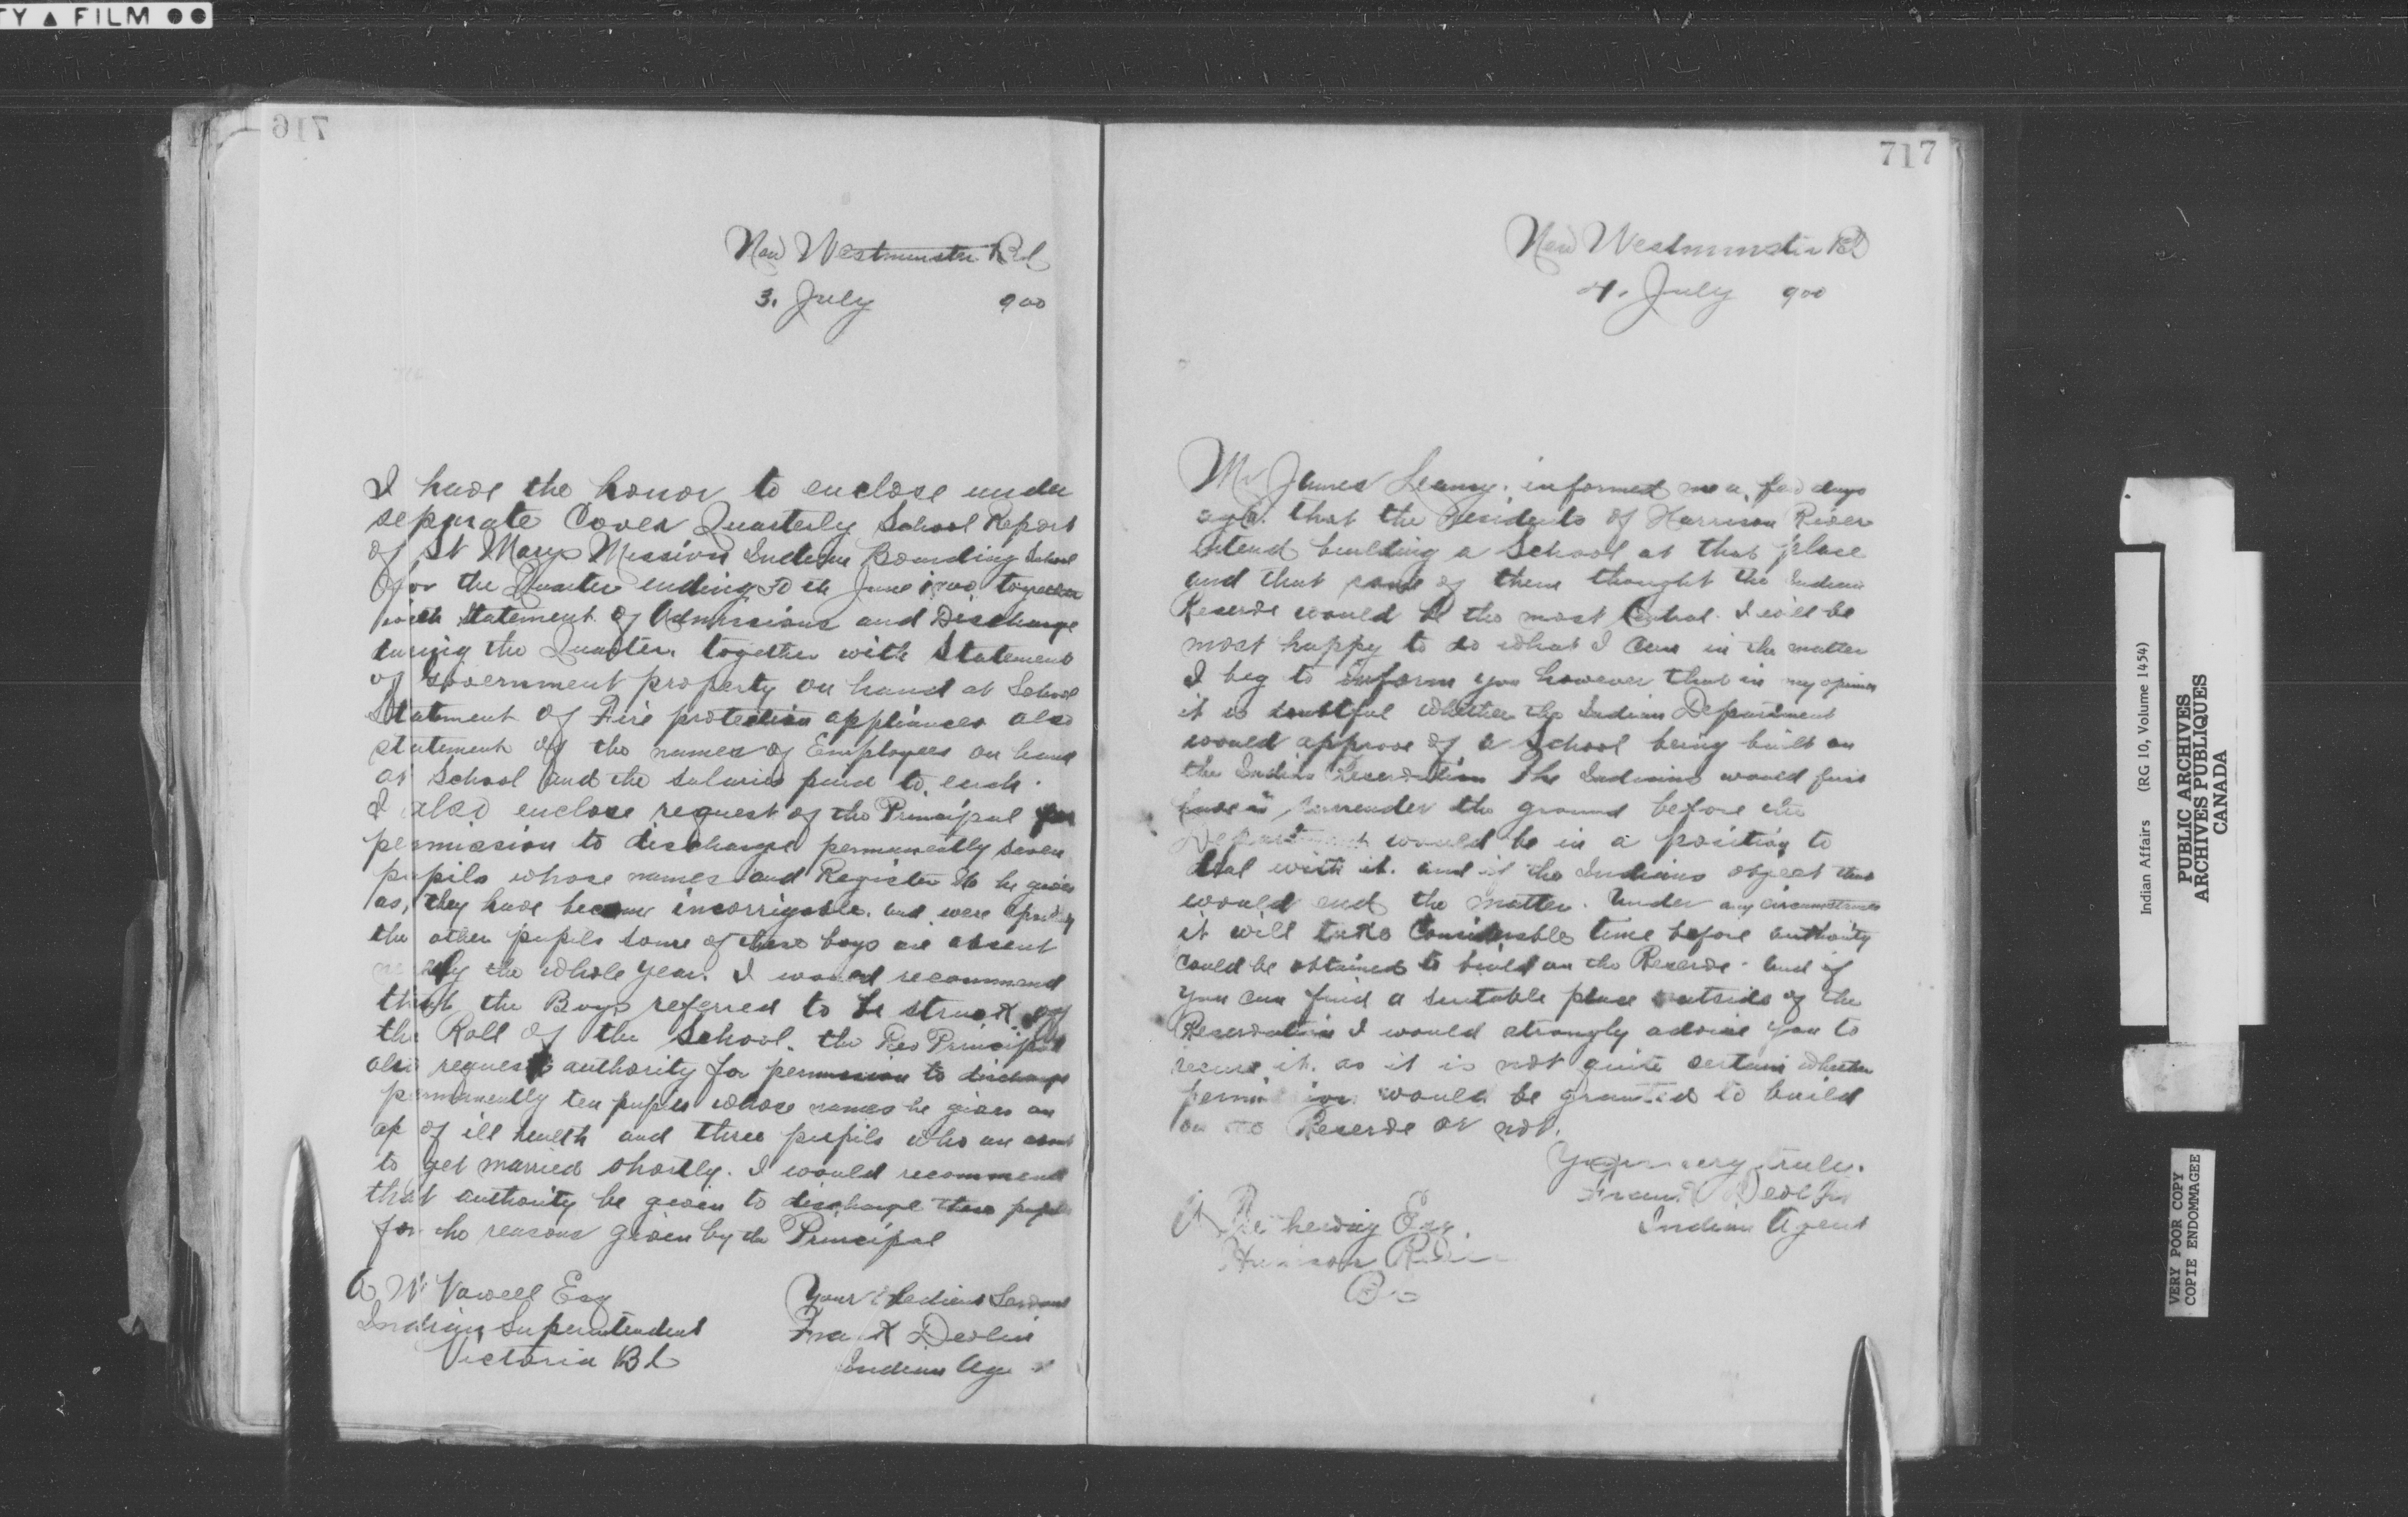 TY ▲ FILM ●●
716
New Westminster BC
3. July 900
I have the honor to enclose under
separate Cover Quarterly School Report
of St Marys Mission Indian Boarding School
for the Quarter ending 30th June 1900 together
with Statement of Admissions and Discharge
during the Quarter. together with Statement
of Government property on hand at School
Statment of Fire protection appliances also
statement of the names of Employees on hand
at School and the salaries paid to each.
I also enclose request of the Principal for
permission to discharge permanently seven
pupils whose names and Register No he gives
as, they have become incorrigable. and were
the other pupils some of these boys are absent
nearly the whole year. I would recommend
that the Boys referred to be struck off
the Roll of the School. the Rev Principal
also requests authority for permission to discharge
permanently ten pupils whose names he gives on
of ill health and three pupils who are about
to get married shortly. I would recommend
that authority be given to discharge these pupils
for the reasons given by the Principal
A W Vowell Esq
Indian Superintendent
Victoria BC
Your Obedient Servant
Frank Devlin
Indian Agent
717
New Westminster BC
4. July 900
Mr James Leamy. informed me a few days
ago. that the residents of Harrison River
intend building a School at that place
and that some of them thought the Indian
Reserve would be the most Central. I will be
most happy to do what I can in the matter
I beg to inform you however that in my opinion
it is doubtful whether the Indian Department
would approve of a School being built on
the Indian Reservation The Indians would first
have to surrender the ground before the
Department would be in a position to
deal with it. and if the Indians object that
would end the matter. Under any circumstances
it will take Considerable time before authority
could be obtained to build on the Reserve. And if
you can find a suitable place outside of the
Reservation I would strongly advise you to
secure it. as it is not quite certain whether
permission would be granted to build
on the Reserve or not.
Yours very truly.
Frank Devlin
Indian Agent
Esq
Harrison River
BC
Indian Affairs (RG 10, Volume 1454)
PUBLIC ARCHIVES
ARCHIVES PUBLIQUES
CANADA
VERY POOR COPY
COPIE ENDOMMAGEE